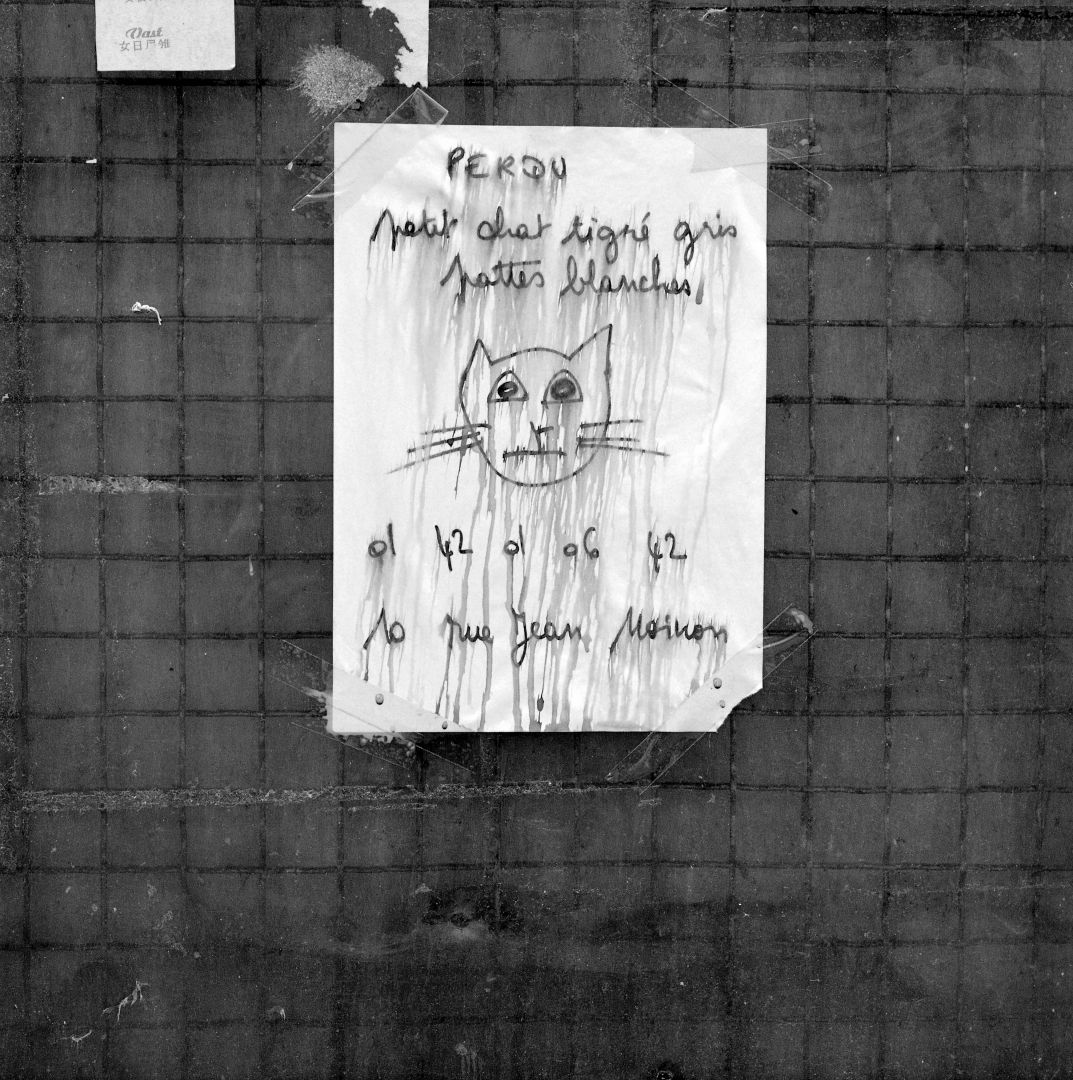 Vast
PERDU
petit chat tigré gris
pattes blanches
01 42 01 96 42
10 rue Jean Moinon